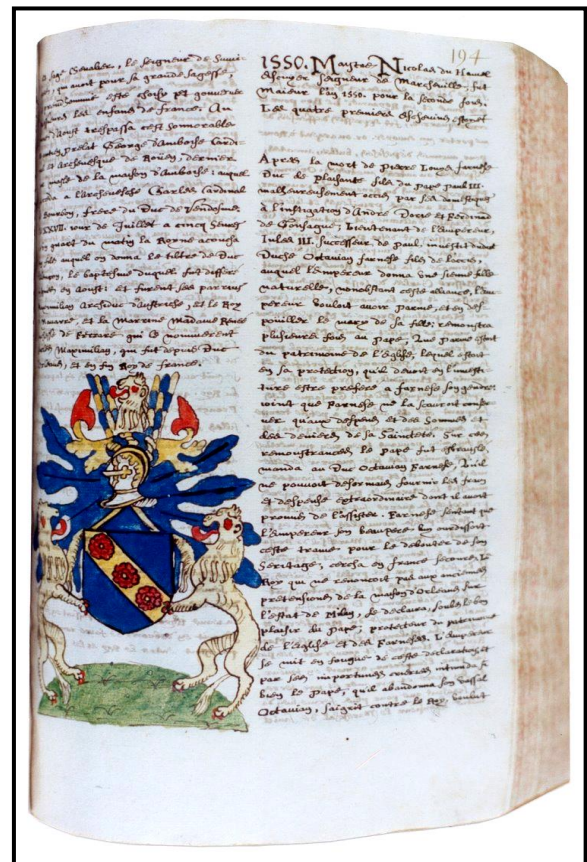 sage Chevalier, le seigneur de
qui avoit pour sa grande sagesse,
esté choisy et gouverne
les enfans de france. An
trespassa
Prelat George d'amboise Cardi-
Archevesque de Rouen, dernier
de la maison d'amboise: auquel
a l'archevesché Charles Cardinal
Bourbon, frere du Duc de Vendosme
XXVII. iour de Juillet a cinq heures
quart du matin la Royne acoucha
fils auquel on donna le tiltre de Duc
le baptesme duquel fut differé
en aoust: et furent ses parrins
Archiduc d'austriche, et le Roy
navare, et la Marrine Madame
de Ferrare qui le nommerent
Maximilian, qui fut depuis Duc
et en fin Roy de france.
194
1550. Maistre Nicolas du Hamel
Escuyer seigneur de Marcheville, fut
Maieur l'an 1550. pour la seconde fois.
Les quatre premiers Eschevins estoient
Apres la mort de Pierre Louys farnese
Duc de plaisance fils du pape paul III.
malheureusement occis par ses domestiques
à l'instigation d'Andre Dorie et Ferdinand
de Gonsague, Lieutenant de l'Empereur,
Jules III. successeur de paul, dudit
Duché Octavian farnese fils de
auquel l'Empereur donna une sienne fille
naturelle, nonobstant ceste aliance, l'Em-
pereur voulant avoir parme, et en des-
pouiller le mary de sa fille, remonstra
plusieurs fois au pape, que parme estoit
du patrimoine de l'Eglise, lequel estoit
en sa protection, qu'il devoit en l'investi-
ture estre preferé a farnese son gendre.
ioint que farnese ne la scauroit conser-
ver qu'aux despens et des sommes
des deniers de sa Sainteté. Sur ces
remonstrances, le pape fut
manda au Duc Octavian farnese, qu'il
ne pouvoit desormais fournir les frais
et despense extraordinaire dont il avoit
promis de l'assister. Farnese sentant que
l'Empereur son beaupere luy ourdissoit
ceste trame pour le debouter de son
heritage, cercha en france secours. Le
Roy qui ne renonçoit pas aux anciennes
pretensions de la maison d'Orleans sur
l'estat de Milan, se declara, soubs le bon
plaisir du pape, protecteur du patrimoine
de l'eglise et des Farneses. L'Empereur
se mit en fougue de ceste declaration, et
par ses importunes intimida si
bien le pape, qu'il abandonna son vassal
Octavian, s'aigrit contre le Roy voulant